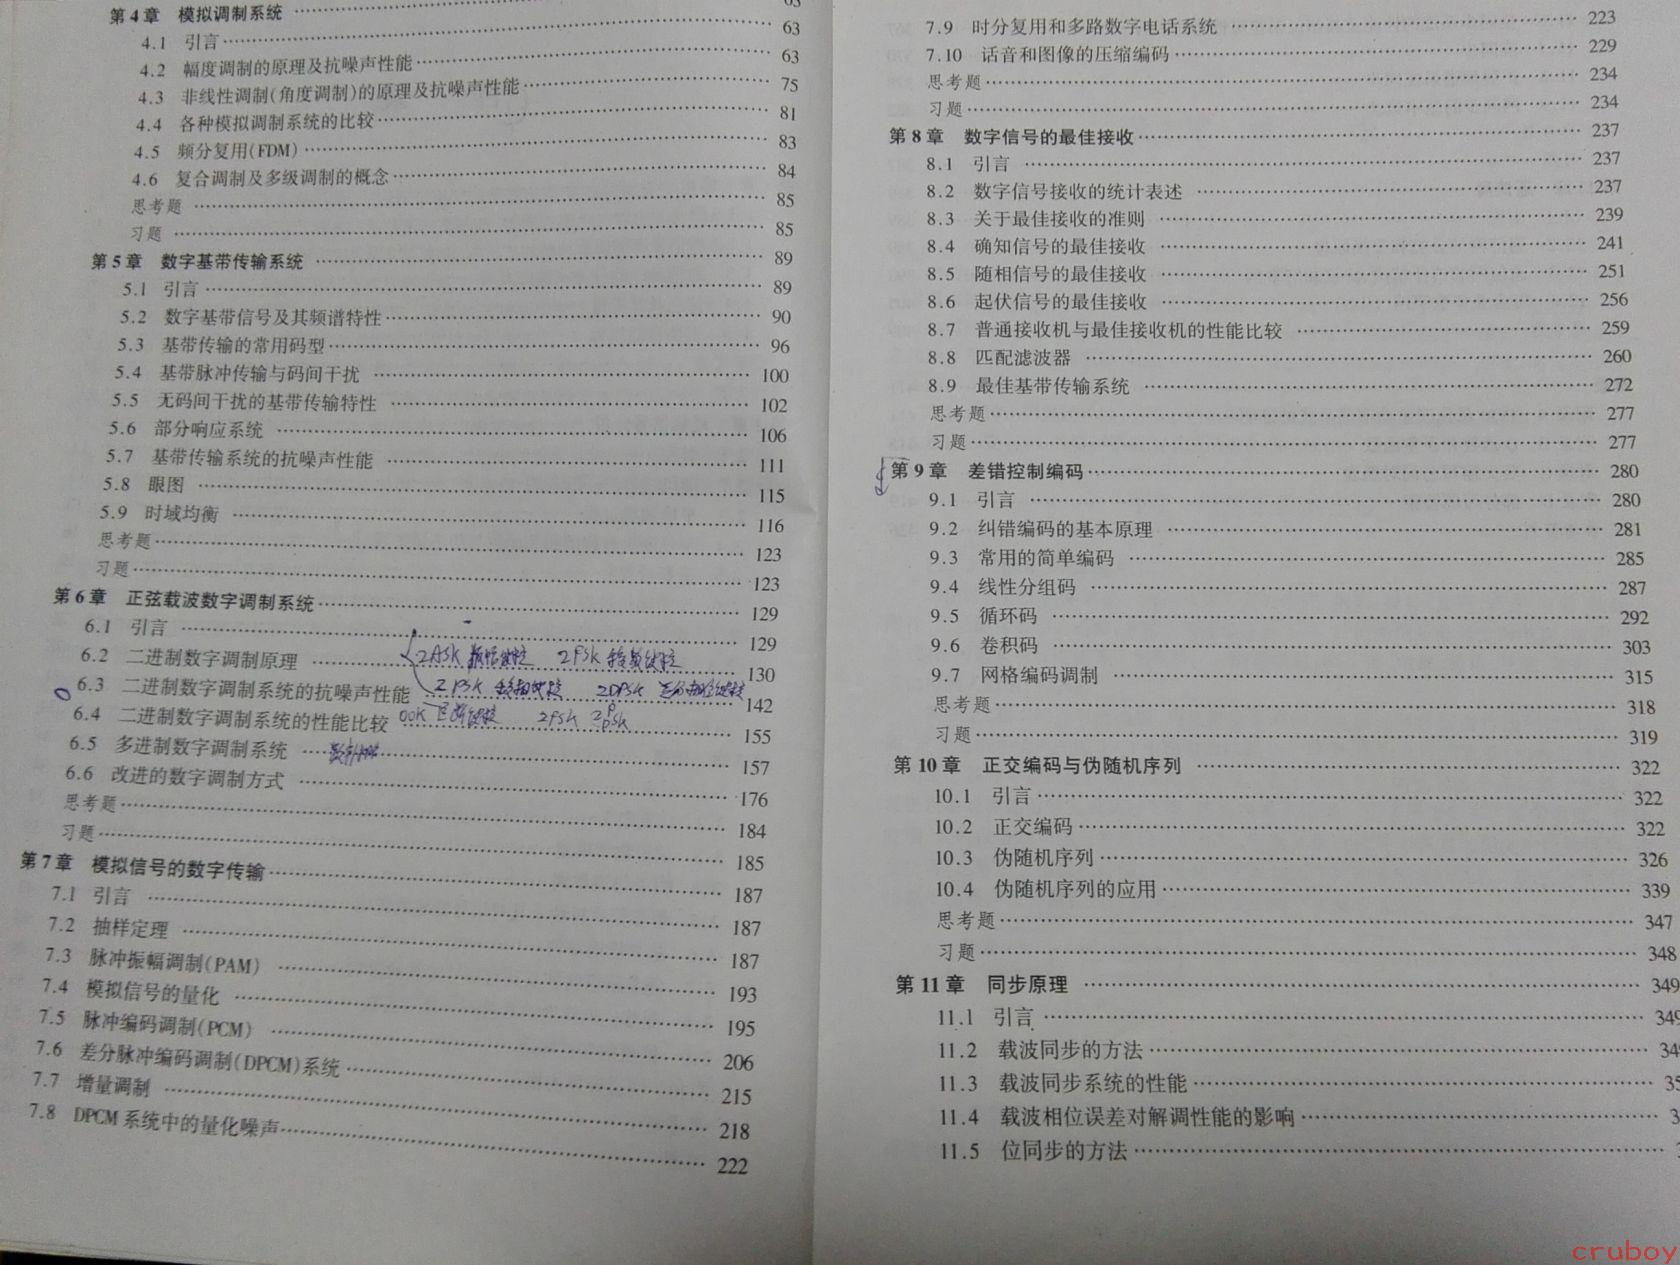 第4章 模拟调制系统 63
4.1 引言 63
4.2 幅度调制的原理及抗噪声性能 63
4.3 非线性调制(角度调制)的原理及抗噪声性能 75
4.4 各种模拟调制系统的比较 81
4.5 频分复用(FDM) 83
4.6 复合调制及多级调制的概念 84
思考题 85
习题 85
第5章 数字基带传输系统 89
5.1 引言 89
5.2 数字基带信号及其频谱特性 90
5.3 基带传输的常用码型 96
5.4 基带脉冲传输与码间干扰 100
5.5 无码间干扰的基带传输特性 102
5.6 部分响应系统 106
5.7 基带传输系统的抗噪声性能 111
5.8 眼图 115
5.9 时域均衡 116
思考题 123
习题 123
第6章 正弦载波数字调制系统 129
6.1 引言 129
6.2 二进制数字调制原理 130
2ASK 振幅键控 2FSK 移频键控
6.3 二进制数字调制系统的抗噪声性能 142
2PSK 移相键控 2DPSK 差分相位键控
6.4 二进制数字调制系统的性能比较 155
OOK 2PSK
6.5 多进制数字调制系统 157
6.6 改进的数字调制方式 176
思考题 184
习题 185
第7章 模拟信号的数字传输 187
7.1 引言 187
7.2 抽样定理 187
7.3 脉冲振幅调制(PAM) 193
7.4 模拟信号的量化 195
7.5 脉冲编码调制(PCM) 206
7.6 差分脉冲编码调制(DPCM)系统 215
7.7 增量调制 218
7.8 DPCM系统中的量化噪声 222
7.9 时分复用和多路数字电话系统 223
7.10 话音和图像的压缩编码 229
思考题 234
习题 234
第8章 数字信号的最佳接收 237
8.1 引言 237
8.2 数字信号接收的统计表述 237
8.3 关于最佳接收的准则 239
8.4 确知信号的最佳接收 241
8.5 随相信号的最佳接收 251
8.6 起伏信号的最佳接收 256
8.7 普通接收机与最佳接收机的性能比较 259
8.8 匹配滤波器 260
8.9 最佳基带传输系统 272
思考题 277
习题 277
第9章 差错控制编码 280
9.1 引言 280
9.2 纠错编码的基本原理 281
9.3 常用的简单编码 285
9.4 线性分组码 287
9.5 循环码 292
9.6 卷积码 303
9.7 网格编码调制 315
思考题 318
习题 319
第10章 正交编码与伪随机序列 322
10.1 引言 322
10.2 正交编码 322
10.3 伪随机序列 326
10.4 伪随机序列的应用 339
思考题 347
习题 348
第11章 同步原理 349
11.1 引言 349
11.2 载波同步的方法 34
11.3 载波同步系统的性能 35
11.4 载波相位误差对解调性能的影响 3
11.5 位同步的方法
cruboy